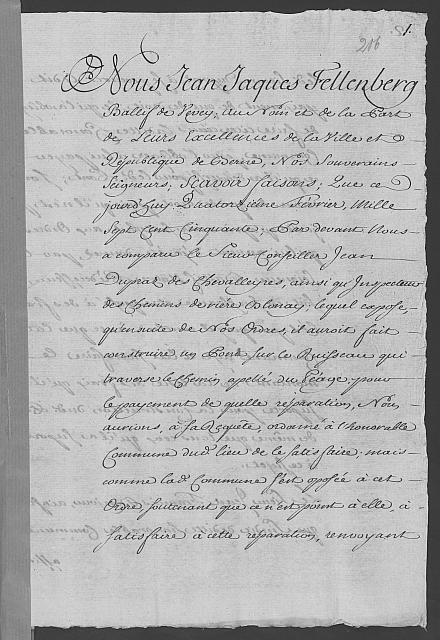 1.
216
Nous Jean Jaques Fellenberg
Ballif de Vevey, au Nom et de la Part
de Leurs Excellences de la Ville et
République de Berne, Nos Souverains
Seigneurs, Scavoir faisons; Que ce
jourd'huy Quatorzieme Février, Mille
Sept Cent Cinquante; Par devant Nous
a comparu le Sieur Conseiller Jean
Dupraz de Chevalleyres, ainsi qu'Inspecteur
des Chemins de riére Blonai; lequel expose,
qu'ensuite de Nos Ordres, il auroit fait
construire un Pont sur le Ruisseau qui
traverse le Chemin appellé du Péage; pour
le payement de quelle réparation, Nous
aurions, à sa Reqûete, ordonné à l'honorable
Commune dud. lieu de le Satisfaire; mais
comme lad. Commune s'est opposée à cet
Ordre soutenant que ce n'est point à elle, à
Satisfaire à cette reparation, renvoyant